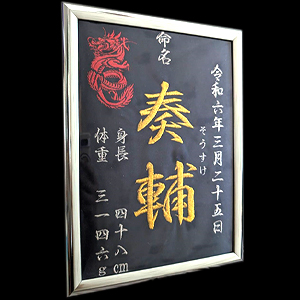 命名
令和六年三月二十五日
そうすけ
奏輔
身長 四十八cm
体重 三一四六g